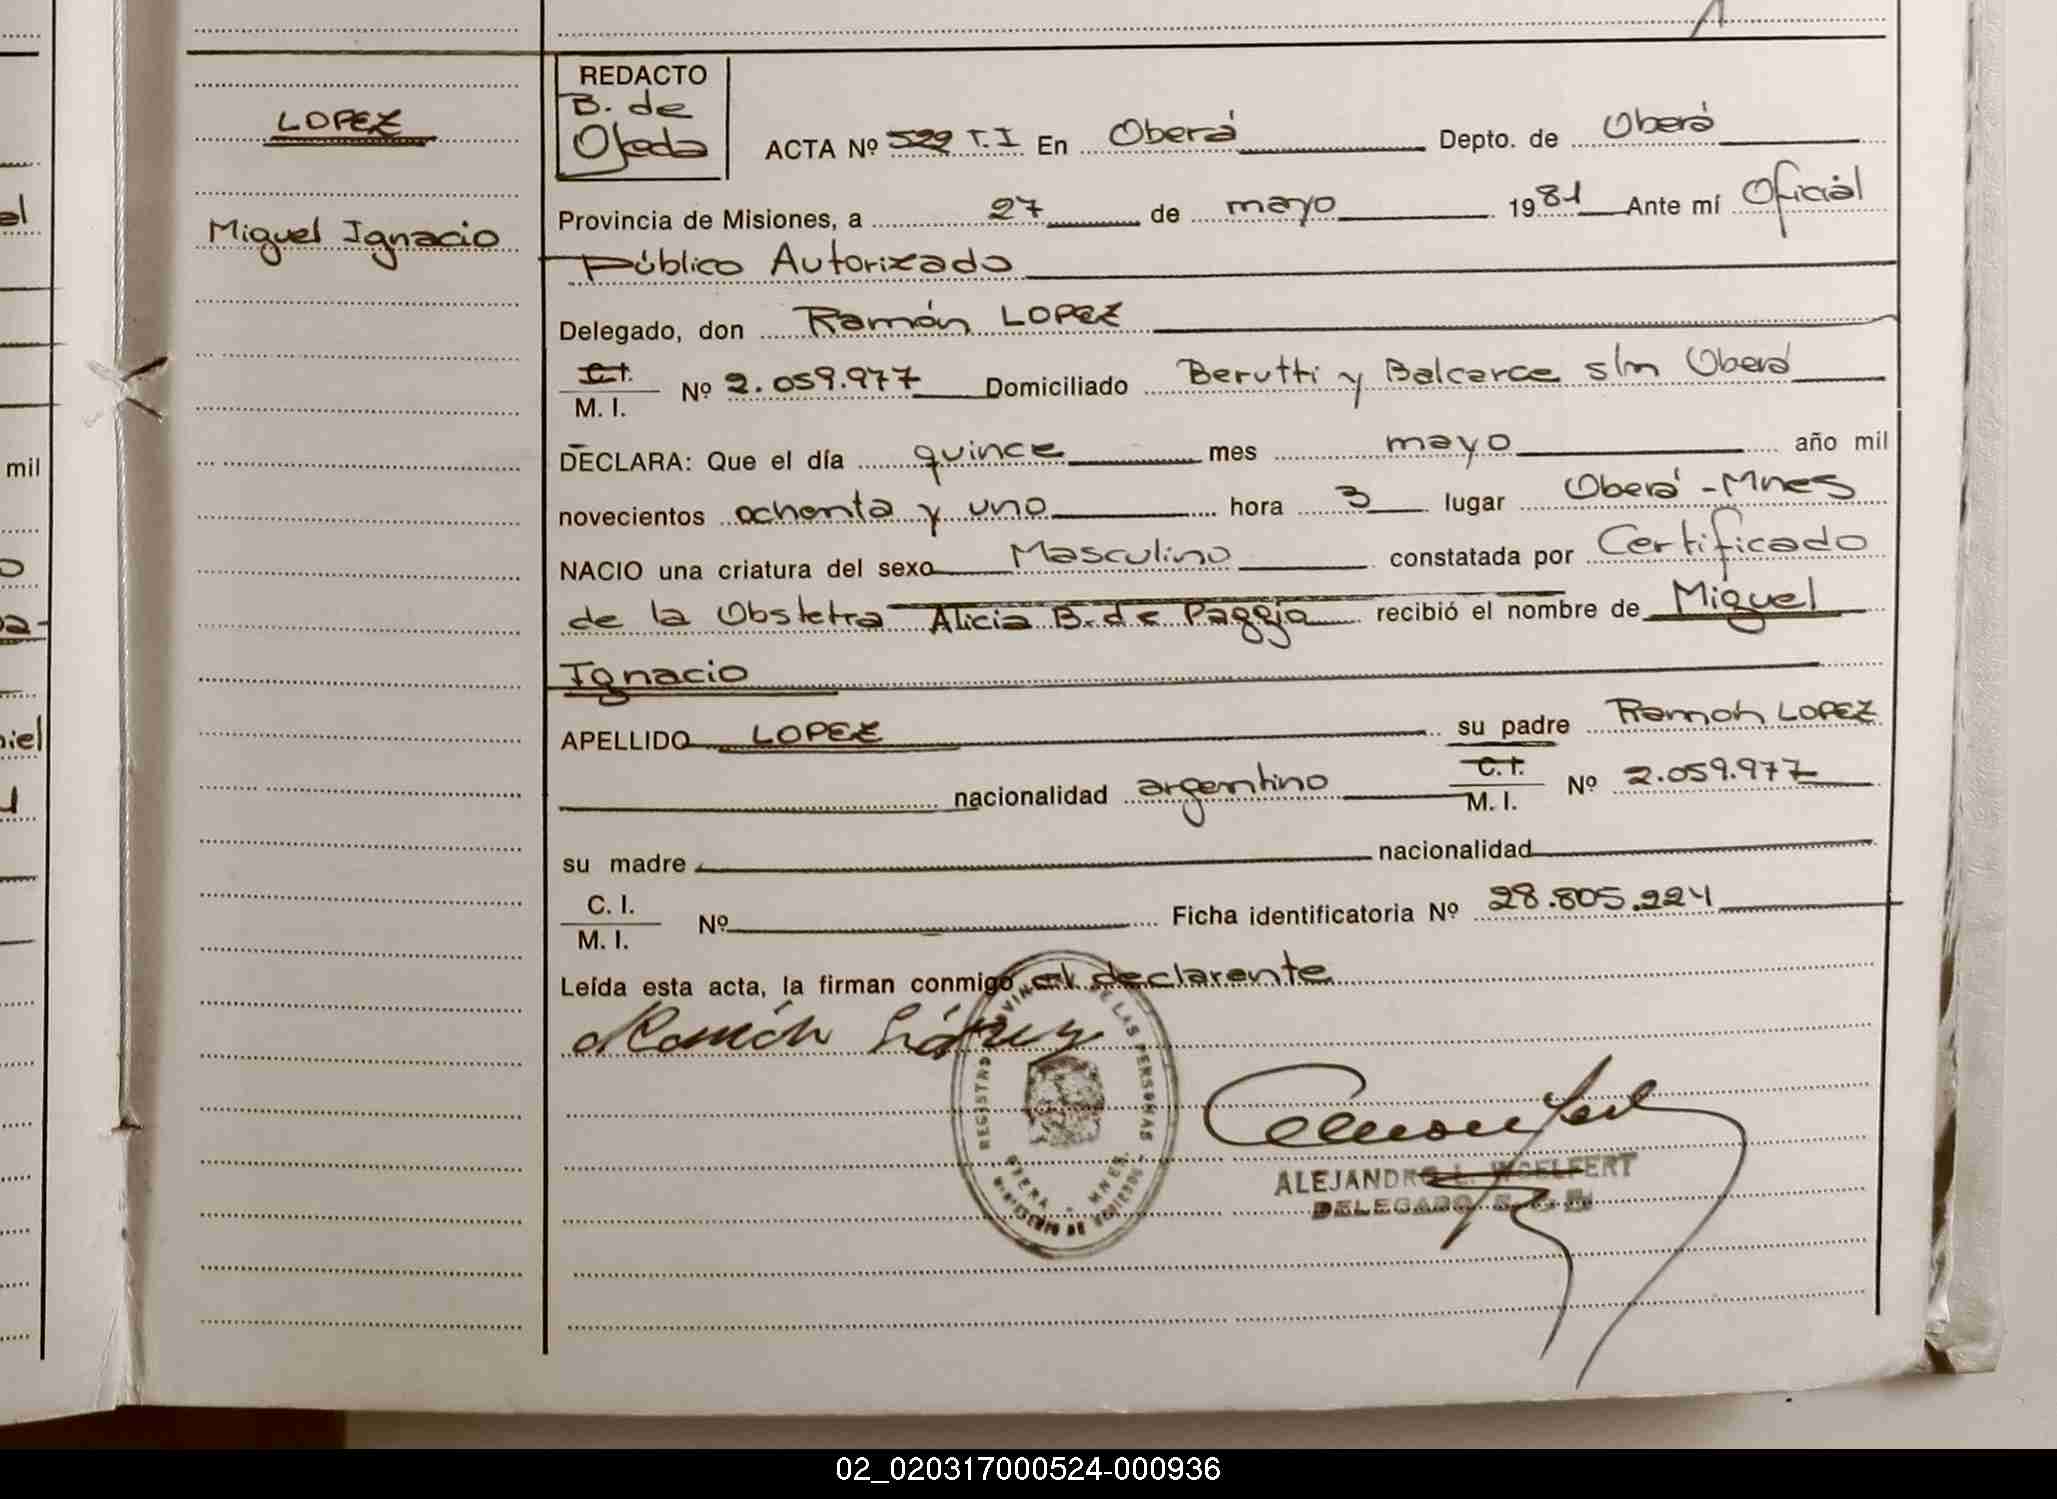 REDACTO
B. de
Ojeda
LOPEZ
Miguel Ignacio
ACTA Nº 522 T.I En Oberá Depto. de Oberá
Provincia de Misiones, a 27 de mayo 1981 Ante mí Oficial
Público Autorizado
Delegado, don Ramón LOPEZ
C.I.
M. I. Nº 2.059.977 Domiciliado Berutti y Balcarce s/n Oberá
DECLARA: Que el día quince mes mayo año mil
novecientos ochenta y uno hora 3 lugar Oberá -Mnes
NACIO una criatura del sexo Masculino constatada por Certificado
de la Obstetra Alicia B. de Paggja recibió el nombre de Miguel
Ignacio
APELLIDO LOPEZ su padre Ramon LOPEZ
nacionalidad argentino C.I. M. I. Nº 2.059.977
su madre nacionalidad
C. I.
M. I. Nº Ficha identificatoria Nº 28.805.224
Leída esta acta, la firman conmigo el declarente
Ramón López
REGISTRO PROVINCIAL DE LAS PERSONAS
OBERA - MNES.
MINISTERIO DE GOBIERNO
ALEJANDRO L. WOELFERT
DELEGADO
al
mil
o
niel
02_020317000524-000936